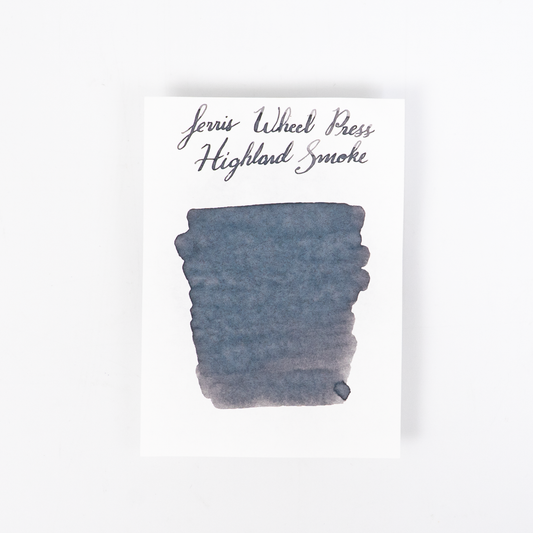 Ferris Wheel Press
Highland Smoke